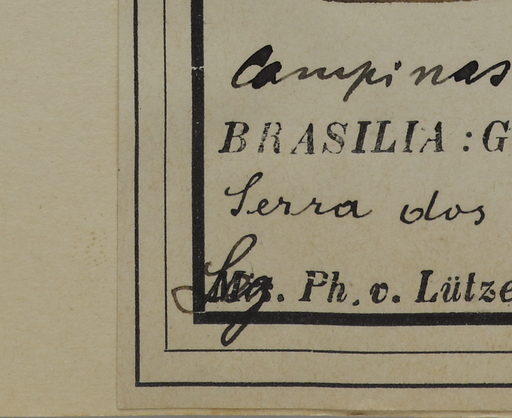 Campinas
BRASILIA : G
Serra dos
Ph. v. Lütze